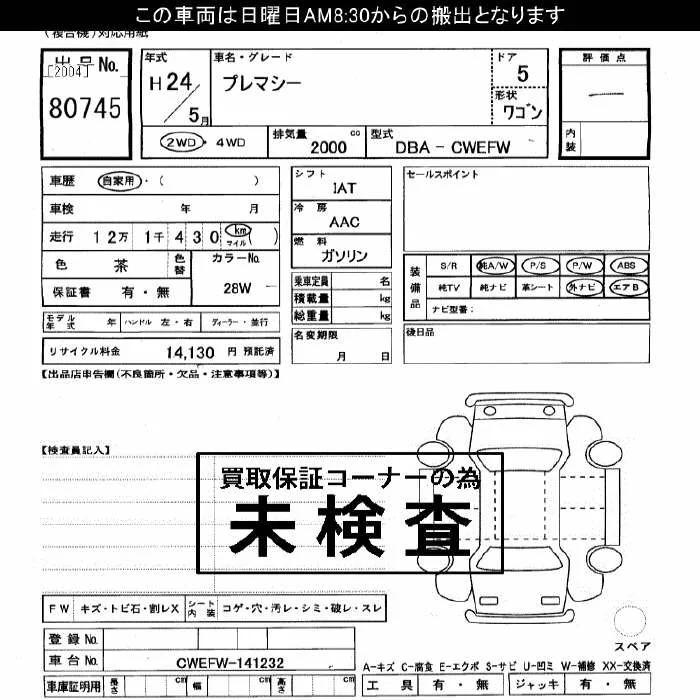 この車両は日曜日AM8:30からの搬出となります
(複合機)対応用紙
出品No. [2004] 80745
年式 H24/5月
車名・グレード プレマシー
ドア 5
形状 ワゴン
評価点 —
内装
2WD・4WD
排気量 cc 2000
型式 DBA - CWEFW
車歴 自家用・( )
車検 年 月
走行 12万 1千 430 km マイル ( )
色 茶 色替 カラーNo. 28W
保証書 有・無
シフト IAT
冷房 AAC
燃料 ガソリン
乗車定員 名
積載量 kg
総重量 kg
セールスポイント
装備品 S/R 純A/W P/S P/W ABS
純TV 純ナビ 革シート 外ナビ エアB
ナビ型番:
モデル年式 年 ハンドル 左・右 ディーラー・並行
リサイクル料金 14,130 円 預託済
名変期限 月 日
後日品
【出品店申告欄(不良箇所・欠品・注意事項等)】
【検査員記入】
買取保証コーナーの為
未検査
FW キズ・トビ石・割レX シート内装 コゲ・穴・汚レ・シミ・破レ・スレ
スペア
登録No.
車台No. CWEFW-141232
A-キズ C-腐食 E-エクボ S-サビ U-凹ミ W-補修 XX-交換済
車庫証明用 長さ cm 幅 cm 高さ cm
工具 有・無 ジャッキ 有・無